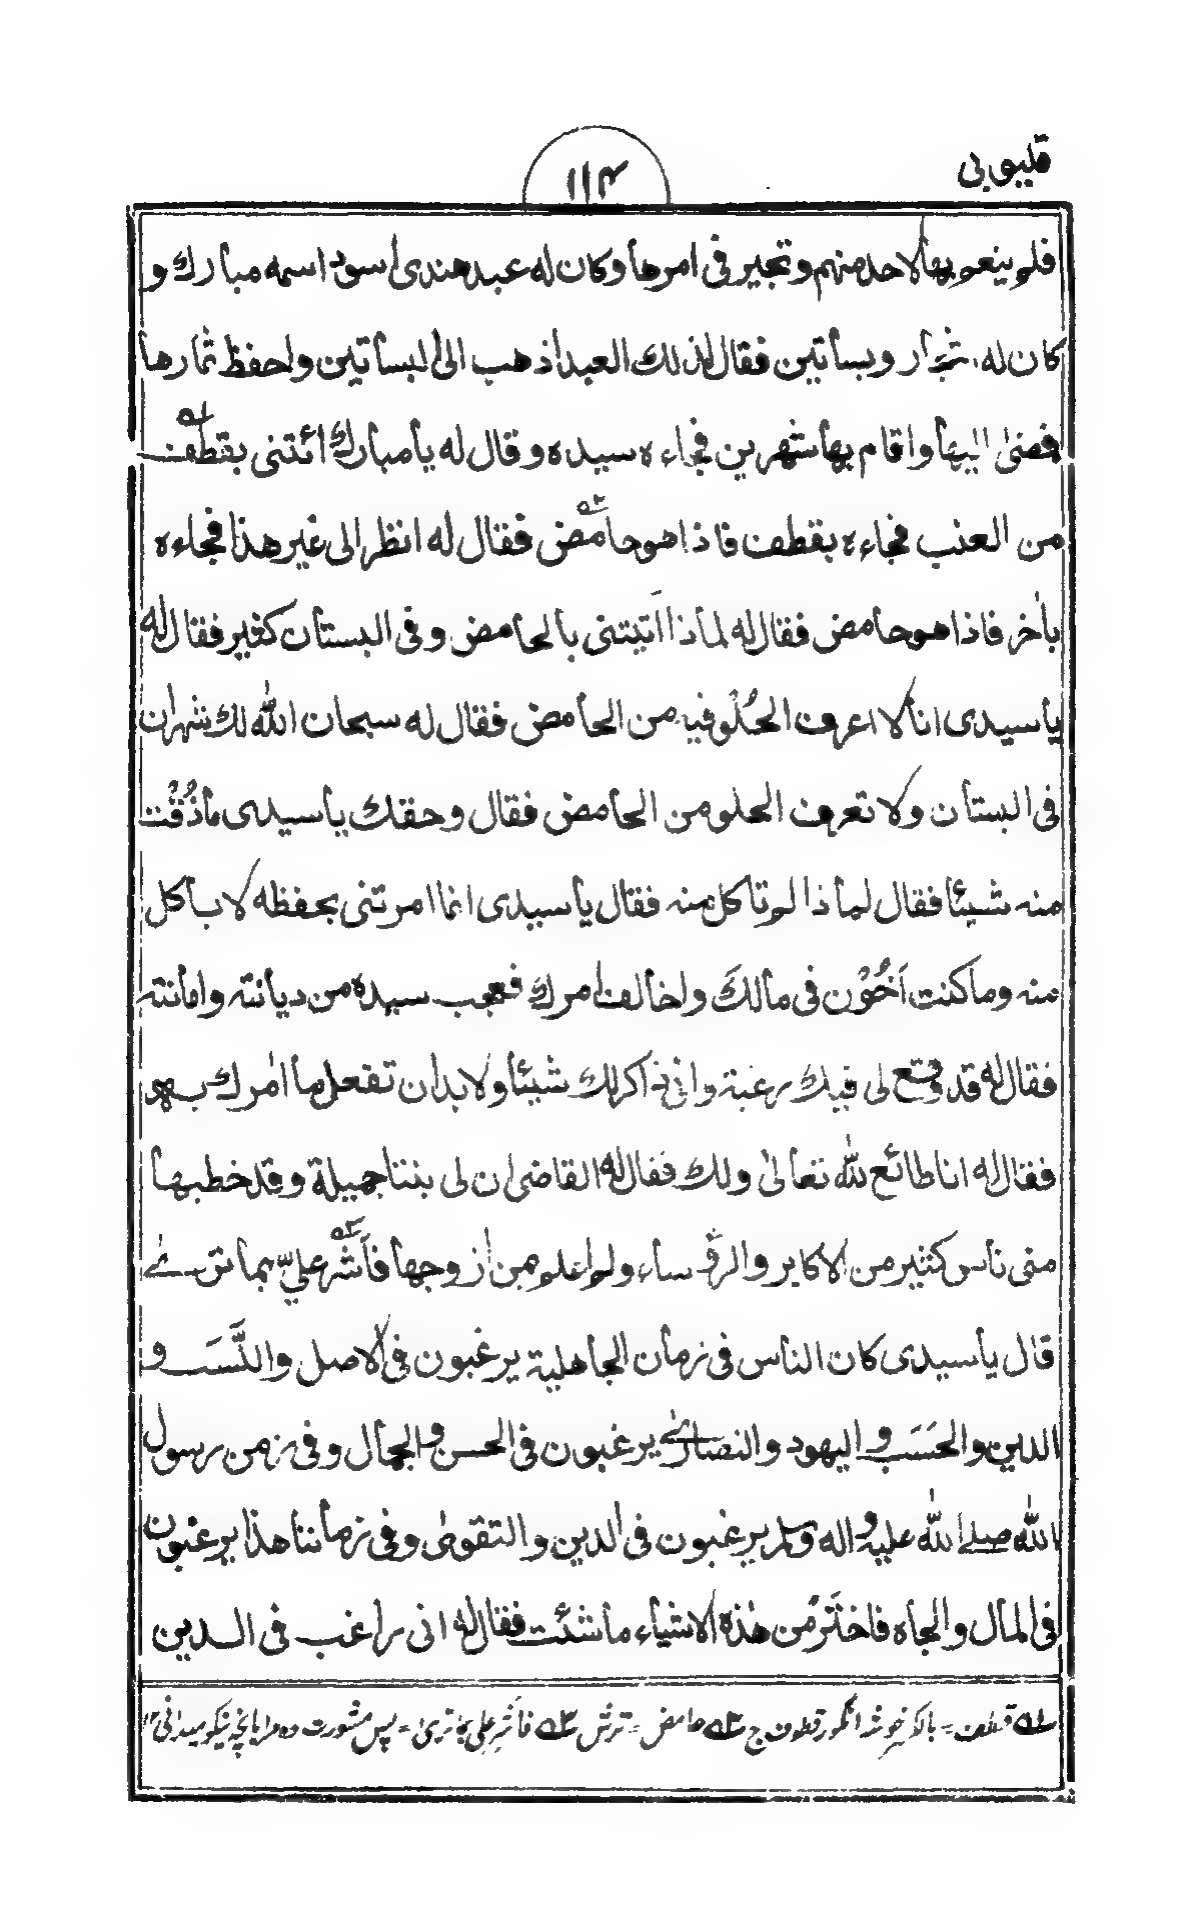 قليوبى
١١٤
فلم ينعم بها لاحد منهم وتحير فى امرها وكان له عبد هندى اسود اسمه مبارك و
كان له اشجار وبساتين فقال لذلك العبد اذهب الى البساتين واحفظ ثمارها
فمضىٰ اليها واقام بها شهرين فجاءه سيده وقال له يا مبارك ائتنى بقطف
من العنب فجاءه بقطف فاذا هو حامض فقال له انظر الى غير هذا فجاءه
باٰخر فاذا هو حامض فقال له لماذا اَتيتنى بالحامض وفى البستان كثير فقال له
يا سيدى انا لا اعرف الحُلْو فيه من الحامض فقال له سبحان اللّٰه لك شهران
فى البستان ولا تعرف الحلو من الحامض فقال وحقك يا سيدى ما ذُقْت
منه شيئا فقال لماذا لم تاكل منه فقال يا سيدى انما امرتنى بحفظه لا باكل
منه وما كنت اَخُوْن فى مالكَ واخالف امرك فعجب سيده من ديانته وامانته
فقال له قد وقع لى فيك رغبة وانى ذاكر لك شيئا ولا بد ان تفعل ما اٰمرك به
فقال له انا طائع للّٰه تعالىٰ ولك فقال له القاضى ان لى بنتا جميلة وقد خطبها
منى ناس كثير من الاكابر والرؤساء ولم اعلم بمن ازوجها فاَشْر علىّ بما ترىٰ
قال يا سيدى كان الناس فى زمان الجاهلية يرغبون فى الاصل والنَّسَب و
الدين والحَسَب و اليهود والنصارىٰ يرغبون فى الحسن و الجمال وفى زمن رسول
اللّٰه صلے اللّٰه عليه و اله وسلم يرغبون فى الدين والتقوىٰ وفى زماننا هذا يرغبون
فى المال والجاه فاختَر من هٰذه الاشياء ما شئت فقال له انى راغب فى الدين
١ قطف = بالكسر خوشہ انگور قطوف ج ٢ حامض = ترش ٣ فاَشْر علی بما ترىٰ = پس مشورت دہ مرا بانچہ نیکو میدانی ١٢